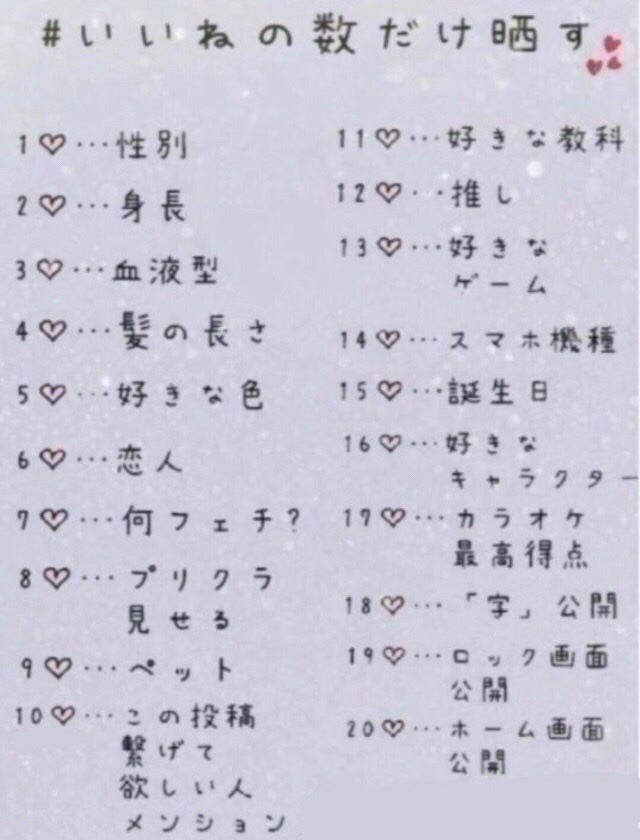 #いいねの数だけ晒す
1♡…性別
2♡…身長
3♡…血液型
4♡…髪の長さ
5♡…好きな色
6♡…恋人
7♡…何フェチ?
8♡…プリクラ
見せる
9♡…ペット
10♡…この投稿
繋げて
欲しい人
メンション
11♡…好きな教科
12♡…推し
13♡…好きな
ゲーム
14♡…スマホ機種
15♡…誕生日
16♡…好きな
キャラクター
17♡…カラオケ
最高得点
18♡…「字」公開
19♡…ロック画面
公開
20♡…ホーム画面
公開